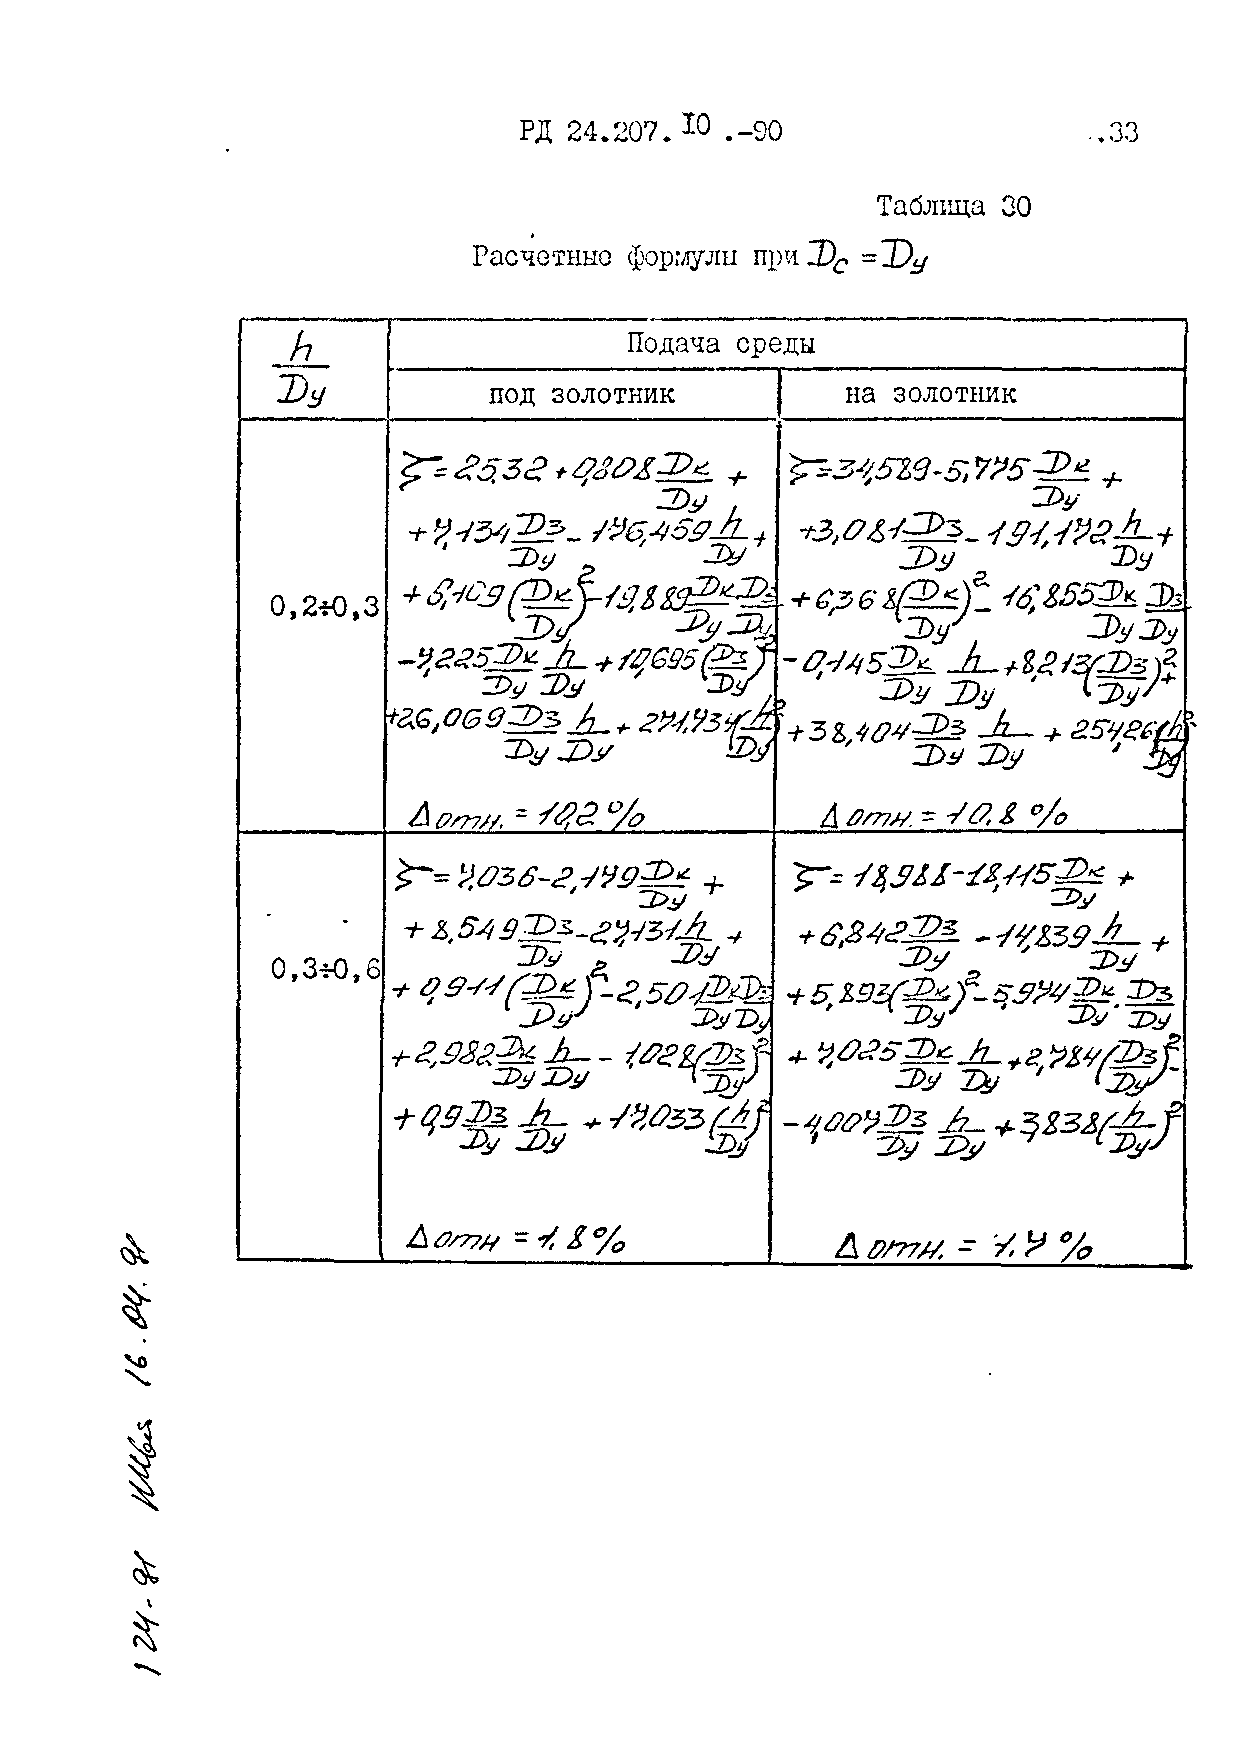 РД 24.207.10.-90 33
Таблица 30
Расчетные формулы при Dс = Dу
h/Dу
Подача среды
под золотник на золотник
0,2÷0,3
ζ = 25,32 + 0,808 Dк/Dу +
+ 7,134 Dз/Dу - 176,459 h/Dу +
+ 8,109 (Dк/Dу)² - 19,889 Dк/Dу Dз/Dу
- 7,225 Dк/Dу h/Dу + 10,695 (Dз/Dу)²
+ 26,069 Dз/Dу h/Dу + 271,734 (h/Dу)²
Δ отн. = 10,2 %
ζ = 34,589 - 5,775 Dк/Dу +
+ 3,081 Dз/Dу - 191,172 h/Dу +
+ 6,368 (Dк/Dу)² - 16,855 Dк/Dу Dз/Dу
- 0,145 Dк/Dу h/Dу + 8,213 (Dз/Dу)² +
+ 38,404 Dз/Dу h/Dу + 254,26 (h/Dу)²
Δ отн. = 10.8 %
0,3÷0,6
ζ = 7,036 - 2,179 Dк/Dу +
+ 8,549 Dз/Dу - 27,131 h/Dу +
+ 0,911 (Dк/Dу)² - 2,501 Dк/Dу Dз/Dу
+ 2,982 Dк/Dу h/Dу - 1,028 (Dз/Dу)²
+ 0,9 Dз/Dу h/Dу + 17,033 (h/Dу)²
Δ отн = 1.8 %
ζ = 18,988 - 18,115 Dк/Dу +
+ 6,842 Dз/Dу - 14,839 h/Dу +
+ 5,893 (Dк/Dу)² - 5,974 Dк/Dу · Dз/Dу
+ 7,025 Dк/Dу h/Dу + 2,784 (Dз/Dу)² -
- 4,007 Dз/Dу h/Dу + 3,838 (h/Dу)²
Δ отн. = 1.7 %
124-91 16.04.91